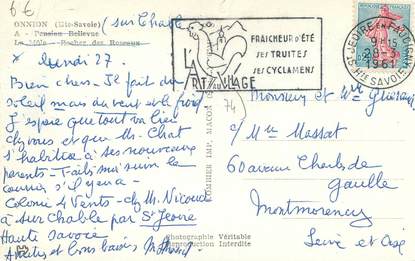 6€
ONNION (Hte-Savoie) (sur Chable
A - Pension Bellevue
Le Môle - Rocher des Roseaux
Lundi 27.
Bien chers. Il fait du
soleil mais du vent et le froid
J'espère que tout va bien
chez vous et que M. Chat
s'habitue à ses nouveaux
parents - Faites moi suivre le
courrier s'il y en a -
Colonie 4 Vents - chez M. Nicoud
à sur Chable par St Jeoire
Haute Savoie
Amitiés et bons baisers
COMBIER IMP. MACON
Photographie Véritable
Reproduction Interdite
FRAICHEUR D'ÉTÉ
SES TRUITES
SES CYCLAMENS
L'ART AU VILLAGE
ST JEOIRE EN FAUCIGNY
9H15
28-3
1961
HTE SAVOIE
74
Monsieur et Mme
c/ Mme Massat
60 avenue Charles de
Gaulle
Montmorency
Seine et Oise